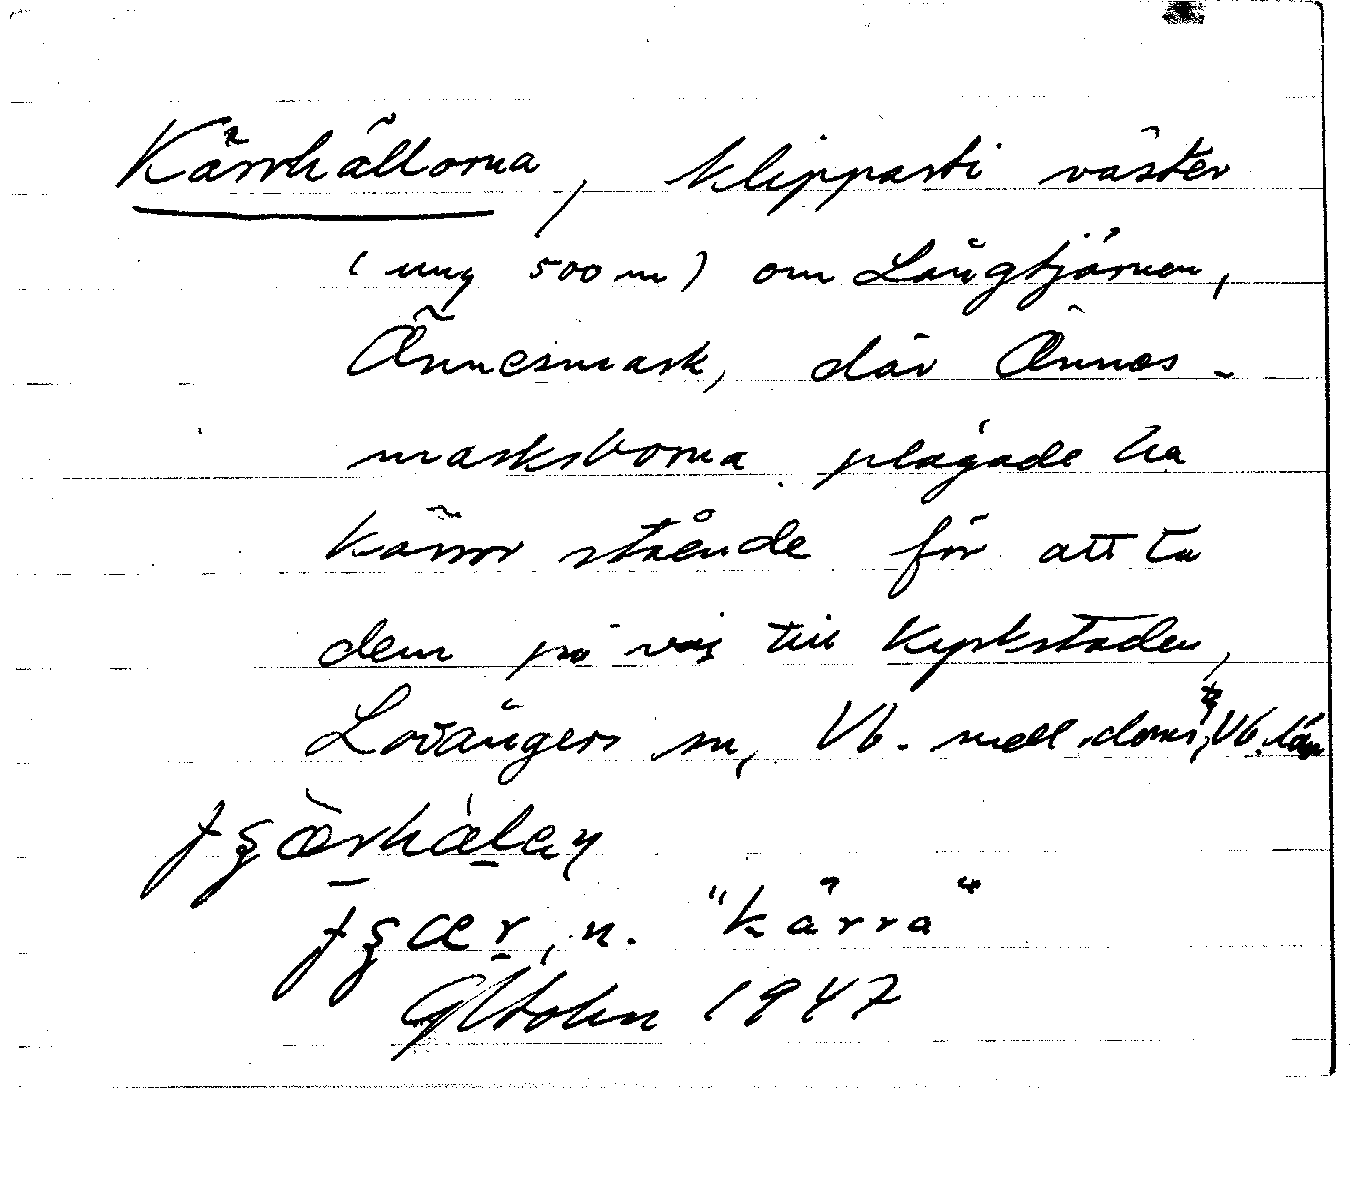 Kärrhällorna, klipparti väster
(ung 500 m) om Långtjärnen,
Önnesmark, där Önnes-
marksborna plägade ha
kärror stående för att ta
dem på väg till Kyrkstaden,
Lövångers sn, Vb. mell. doms, Vb. län
"kärra"
1947